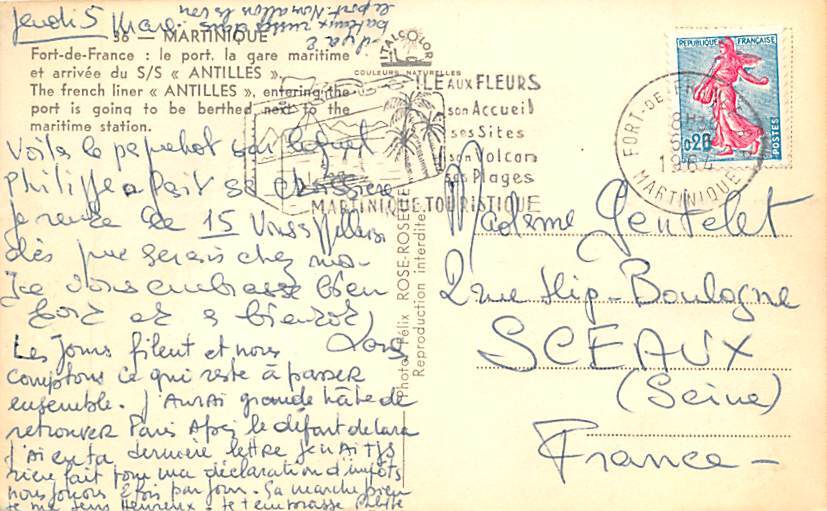 Jeudi 5 Mars.
il y a 2
bateaux russes dans
le port.
36 - MARTINIQUE
Fort-de-France : le port, la gare maritime
et arrivée du S/S « ANTILLES ».
The french liner « ANTILLES », entering the
port is going to be berthed next to the
maritime station.
ITALCOLOR
COULEURS NATURELLES
ÎLE AUX FLEURS
son Accueil
ses Sites
son Volcan
ses Plages
MARTINIQUE TOURISTIQUE
REPUBLIQUE FRANÇAISE
0,20
POSTES
FORT-DE-FRANCE
1964
MARTINIQUE
Photo Félix ROSE-ROSETTE
Reproduction interdite
Voilà le paquebot sur lequel
Philippe a fait sa croisière
je rentre le 15 Vous
dès que serais chez moi
Je vous embrasse bien
fort et à bientôt
Les jours filent et nous
comptons ce qui reste à passer
ensemble. J'aurai grande hâte de
retrouver Paris Après le départ de Lara
J'ai eu ta dernière lettre je n'ai tjs
rien fait pour ma déclaration d'impôts
nous jouons 2 fois par jour. Ça marche bien
je me sens heureux. Je t'embrasse
Madame Gentelet
2 rue Hip. Boulogne
SCEAUX
(Seine)
France -